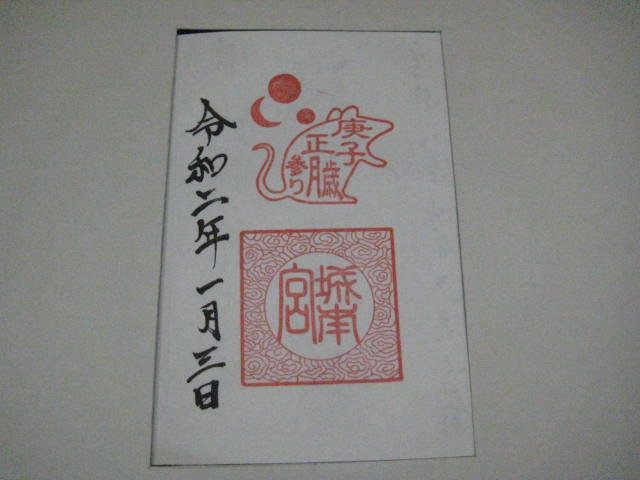 庚子歳
正月
参り
城南
宮
令和二年一月三日